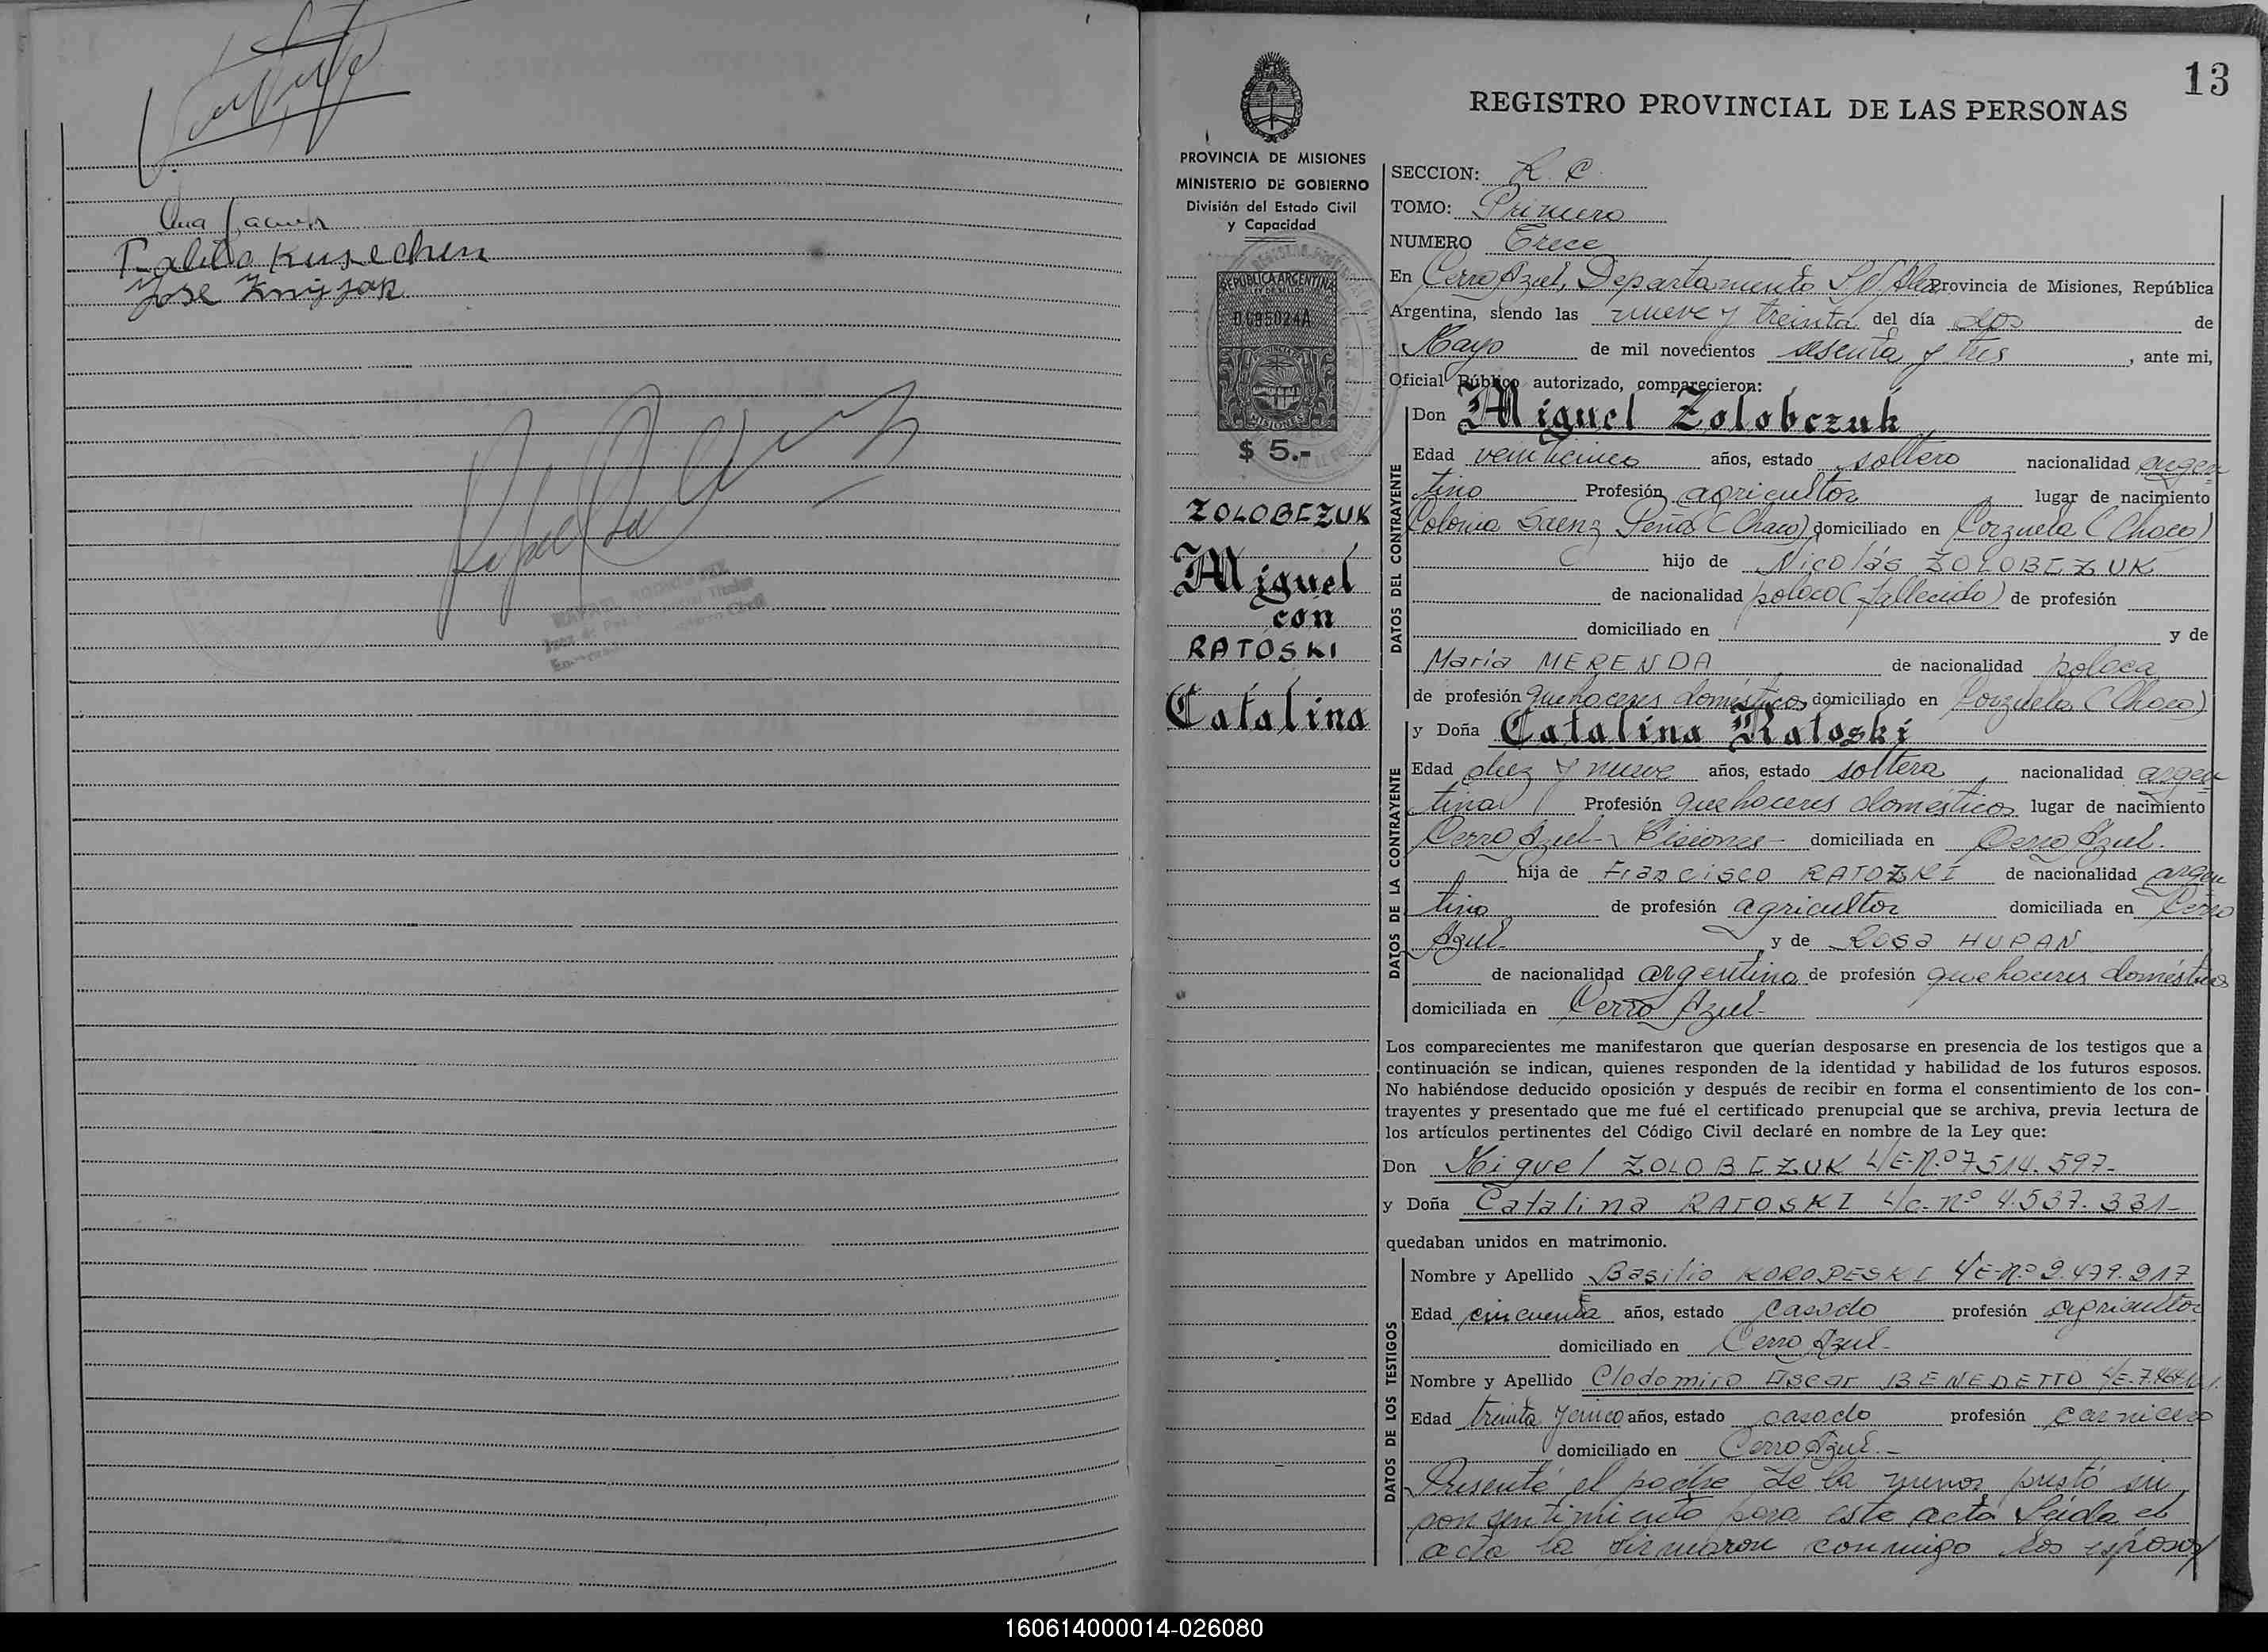 Pablo Kusechen
Jose Knysak
13
REGISTRO PROVINCIAL DE LAS PERSONAS
PROVINCIA DE MISIONES
MINISTERIO DE GOBIERNO
División del Estado Civil
y Capacidad
REPUBLICA ARGENTINA
LEY DE SELLOS
0695024A
MISIONES
$ 5.-
ZOLOBCZUK
Miguel
con
RATOSKI
Catalina
SECCION:
TOMO: Primero
NUMERO Trece
En Cerro Azul, Departamento L. N. Alem Provincia de Misiones, República
Argentina, siendo las nueve y treinta del día dos de
Mayo de mil novecientos sesenta y tres, ante mi,
Oficial Público autorizado, comparecieron:
DATOS DEL CONTRAYENTE
Don Miguel Zolobczuk
Edad veinticinco años, estado soltero nacionalidad argen
tino Profesión agricultor lugar de nacimiento
Colonia Saenz Peña (Chaco) domiciliado en Corzuela (Chaco)
hijo de Nicolás ZOLOBCZUK
de nacionalidad polaco (fallecido) de profesión
domiciliado en y de
María MERENDA de nacionalidad polaca
de profesión quehaceres domésticos domiciliado en Corzuela (Chaco)
DATOS DE LA CONTRAYENTE
y Doña Catalina Ratoski
Edad diez y nueve años, estado soltera, nacionalidad argen
tina Profesión quehaceres domésticos lugar de nacimiento
Cerro Azul - Misiones - domiciliada en Cerro Azul.
hija de Francisco RATOZKI de nacionalidad argen
tino de profesión agricultor domiciliada en Cerro
Azul- y de Rosa HUPAN
de nacionalidad argentina de profesión quehaceres domésticos
domiciliada en Cerro Azul-
Los comparecientes me manifestaron que querían desposarse en presencia de los testigos que a
continuación se indican, quienes responden de la identidad y habilidad de los futuros esposos.
No habiéndose deducido oposición y después de recibir en forma el consentimiento de los con-
trayentes y presentado que me fué el certificado prenupcial que se archiva, previa lectura de
los artículos pertinentes del Código Civil declaré en nombre de la Ley que:
Don Miguel ZOLOBCZUK L/E-N.º 7.514.597-
y Doña Catalina RATOSKI L/C-Nº 4.537.331-
quedaban unidos en matrimonio.
DATOS DE LOS TESTIGOS
Nombre y Apellido Basilio KOROPESKI L/E-Nº 2.479.217
Edad cincuenta años, estado casado profesión agricultor
domiciliado en Cerro Azul-
Nombre y Apellido Clodomiro Ascar BENEDETTO L/E-
Edad treinta y cinco años, estado casado profesión carnicero
domiciliado en Cerro Azul.-
Presente el padre de la menor prestó su
consentimiento para este acto Leída el
acta la firmaron conmigo los esposos
160614000014-026080